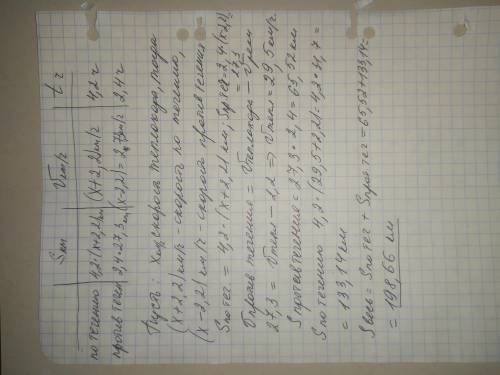 S км | V км/г | t г
по течению | 4,2·(x+2,2) км | (x+2,2) км/г | 4,2 г
против течен | 2,4·27,3 км | (x-2,2) = 27,3 км/г | 2,4 г
Пусть: X км/г скорость теплохода, тогда
(x+2,2) км/г - скорость по течению,
(x-2,2) км/г - скорость против течения
S по теч = 4,2·(x+2,2) км; S пр теч = 2,4(x-2,2)
= 27,3
V против течения = V теплохода - V реки
27,3 = V тепл - 2,2 => V тепл = 29,5 км/г.
S против течения = 27,3·2,4 = 65,52 км
S по течению 4,2·(29,5+2,2) = 4,2·31,7 =
= 133,14 км
S весь = S по теч + S против теч = 65,52+133,14=
= 198,66 км